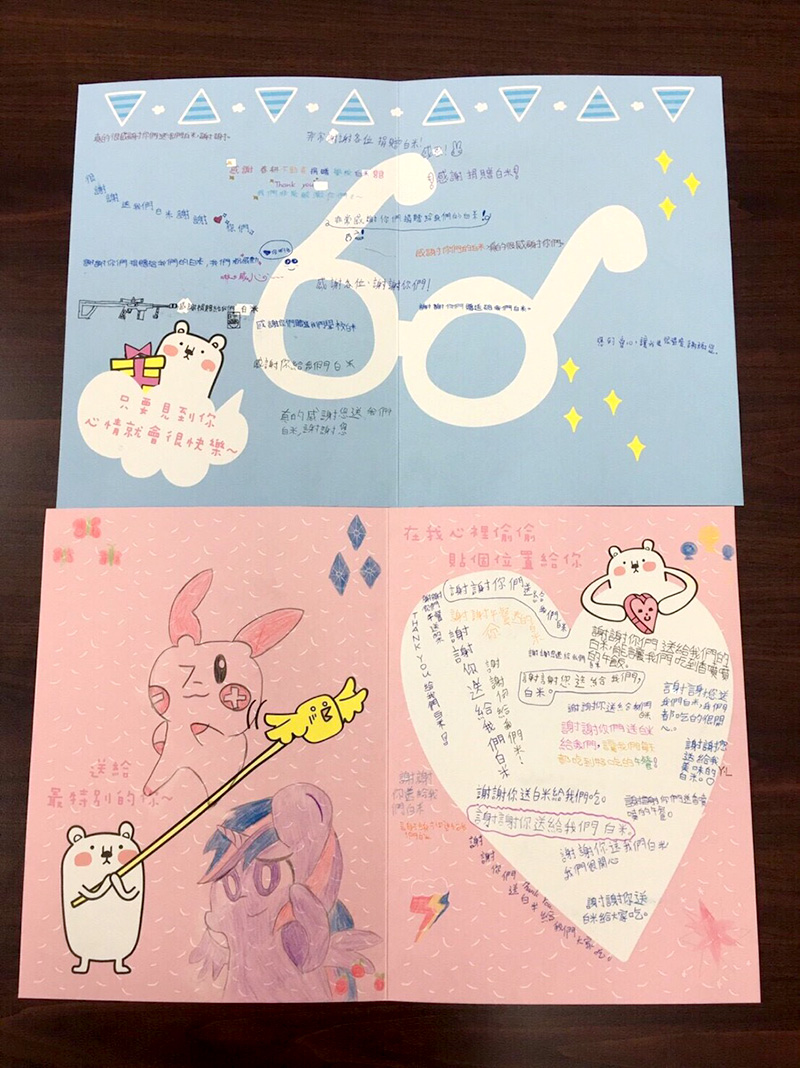 真的很感謝你們送我們白米,謝謝。
非常謝謝各位 捐贈白米!
感謝 捐贈白米!
"Thank you"
謝謝
送我們
白米
謝謝
你們
非常感謝你們捐贈給我們的白米!
謝謝你們捐贈給我們的白米,我們很感動。
感謝你們的白米,真的很感謝你們。
感謝各位,謝謝你們!
感謝捐贈給我們白米
謝謝你們贈送給我們白米。
感謝你們贈送我們學校白米
感謝你給我們白米
真的感謝您送我們
白米,謝謝您
只要見到你
心情就會很快樂~
在我心裡偷偷
貼個位置給你
謝謝你們送給
我們白米
謝謝午餐的
THANK YOU
謝謝你送給我們白米
謝謝你們送給我們的
白米,能讓我們吃到香噴噴
的午飯。
謝謝您送給我們
白米。
謝謝您送
我們白米,我們
都吃的很開
心。
謝謝你送給我們
白米
謝謝你們送白米
給我們,讓我們能
都吃到好吃的午餐!
謝謝您
送給我
美味的
白米。
YL
謝謝你送白米給我們吃。
謝謝你們送香噴
噴的午餐。
謝謝你送給我們白米
謝謝你送我們白米
我們很開心
謝謝你送
白米給大家吃。
謝謝
你送給我
們白米
謝謝你們送白米給我們大家吃。
Thank You
送給
最特別的你~